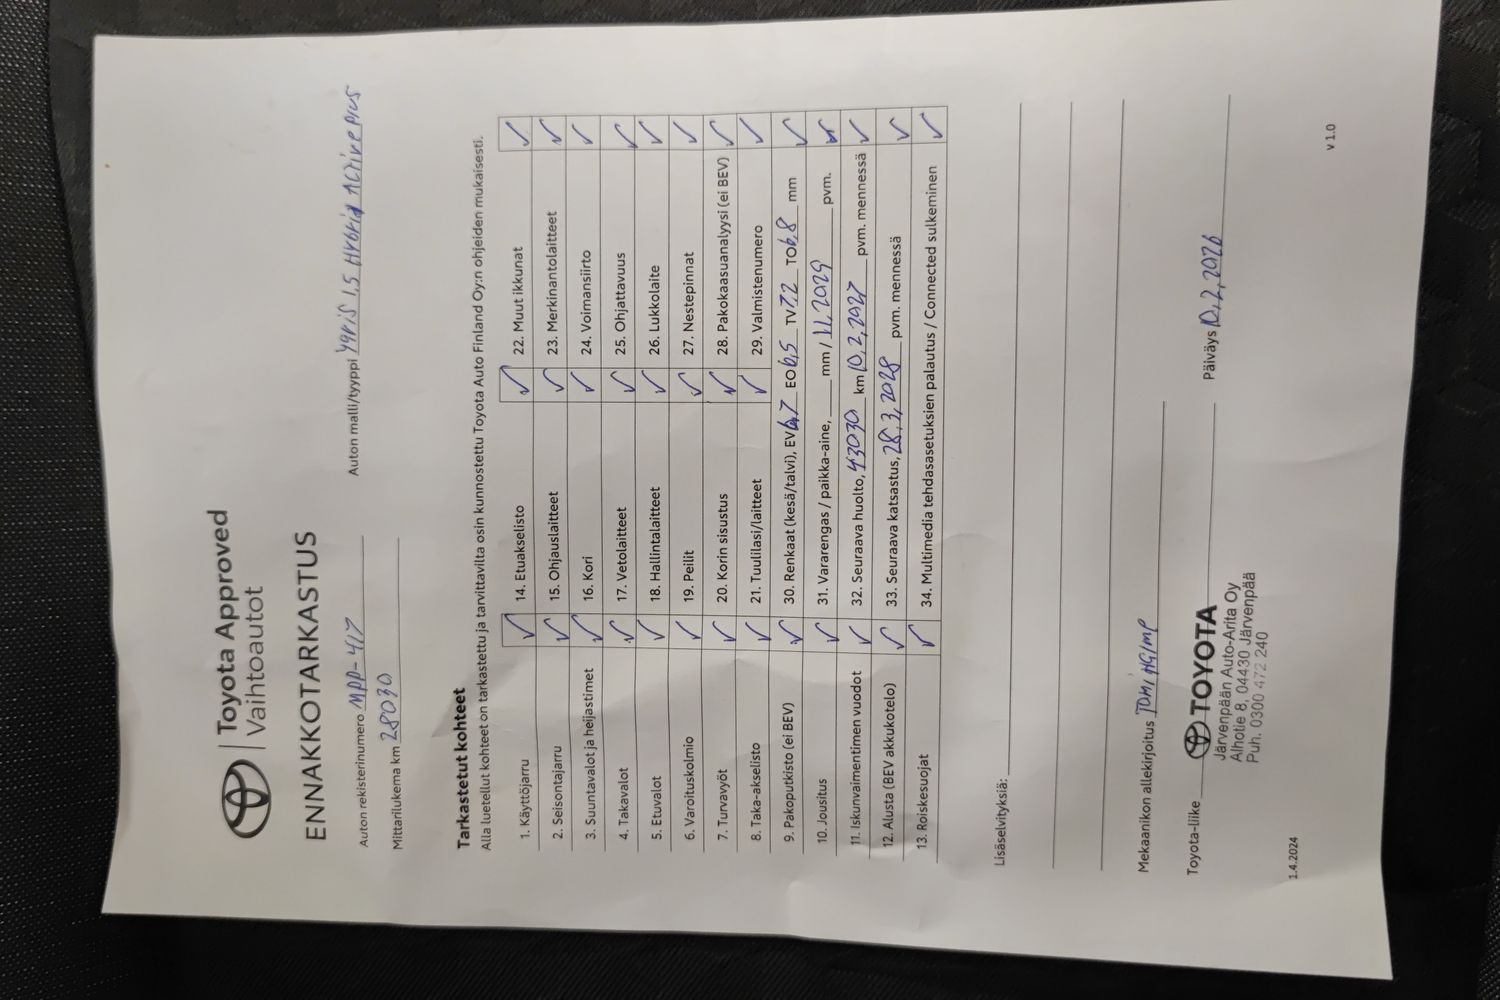 Toyota Approved
Vaihtoautot
ENNAKKOTARKASTUS
Auton rekisterinumero MPP-417 Auton malli/tyyppi Yaris 1,5 Hybrid Active plus
Mittarilukema km 28030
Tarkastetut kohteet
Alla luetellut kohteet on tarkastettu ja tarvittavilta osin kunnostettu Toyota Auto Finland Oy:n ohjeiden mukaisesti.
1. Käyttöjarru ✓ 14. Etuakselisto ✓ 22. Muut ikkunat ✓
2. Seisontajarru ✓ 15. Ohjauslaitteet ✓ 23. Merkinantolaitteet ✓
3. Suuntavalot ja heijastimet ✓ 16. Kori ✓ 24. Voimansiirto ✓
4. Takavalot ✓ 17. Vetolaitteet ✓ 25. Ohjattavuus ✓
5. Etuvalot ✓ 18. Hallintalaitteet ✓ 26. Lukkolaite ✓
6. Varoituskolmio ✓ 19. Peilit ✓ 27. Nestepinnat ✓
7. Turvavyöt ✓ 20. Korin sisustus ✓ 28. Pakokaasuanalyysi (ei BEV) ✓
8. Taka-akselisto ✓ 21. Tuulilasi/laitteet ✓ 29. Valmistenumero ✓
9. Pakoputkisto (ei BEV) ✓ 30. Renkaat (kesä/talvi), EV 6,7 EO 6,5 TV 7,2 TO 6,8 mm ✓
10. Jousitus ✓ 31. Vararengas / paikka-aine, ____ mm / 11.2029 pvm. ✓
11. Iskunvaimentimen vuodot ✓ 32. Seuraava huolto, 43030 km 10.2.2027 pvm. mennessä ✓
12. Alusta (BEV akkukotelo) ✓ 33. Seuraava katsastus, 28.3.2028 pvm. mennessä ✓
13. Roiskesuojat ✓ 34. Multimedia tehdasasetuksien palautus / Connected sulkeminen ✓
Lisäselvityksiä:
Mekaanikon allekirjoitus Tomi
Toyota-liike TOYOTA Päiväys 10.2.2026
Järvenpään Auto-Arita Oy
Alhotie 8, 04430 Järvenpää
Puh. 0300 472 240
1.4.2024 v 1.0